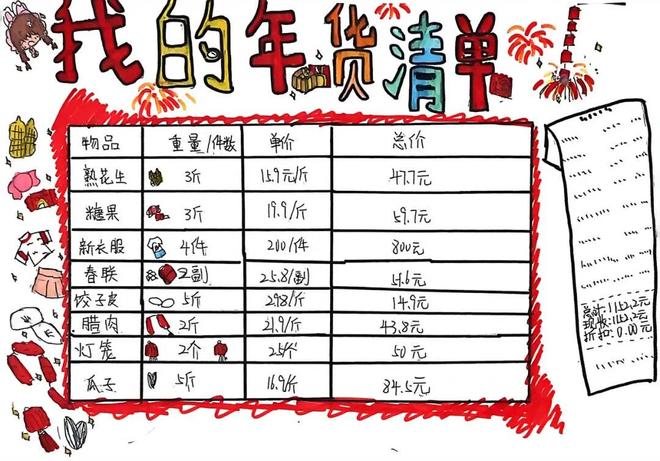 我的年货清单
物品 重量/件数 单价 总价
熟花生 3斤 15.9元/斤 47.7元
糖果 3斤 19.9/斤 59.7元
新衣服 4件 200/件 800元
春联 2副 25.8/副 51.6元
饺子皮 5斤 2.98/斤 14.9元
腊肉 2斤 21.9/斤 43.8元
灯笼 2个 25/个 50元
瓜子 5斤 16.9/斤 84.5元
总计:1152.2元
现收:1152.2元
折扣:0.00元